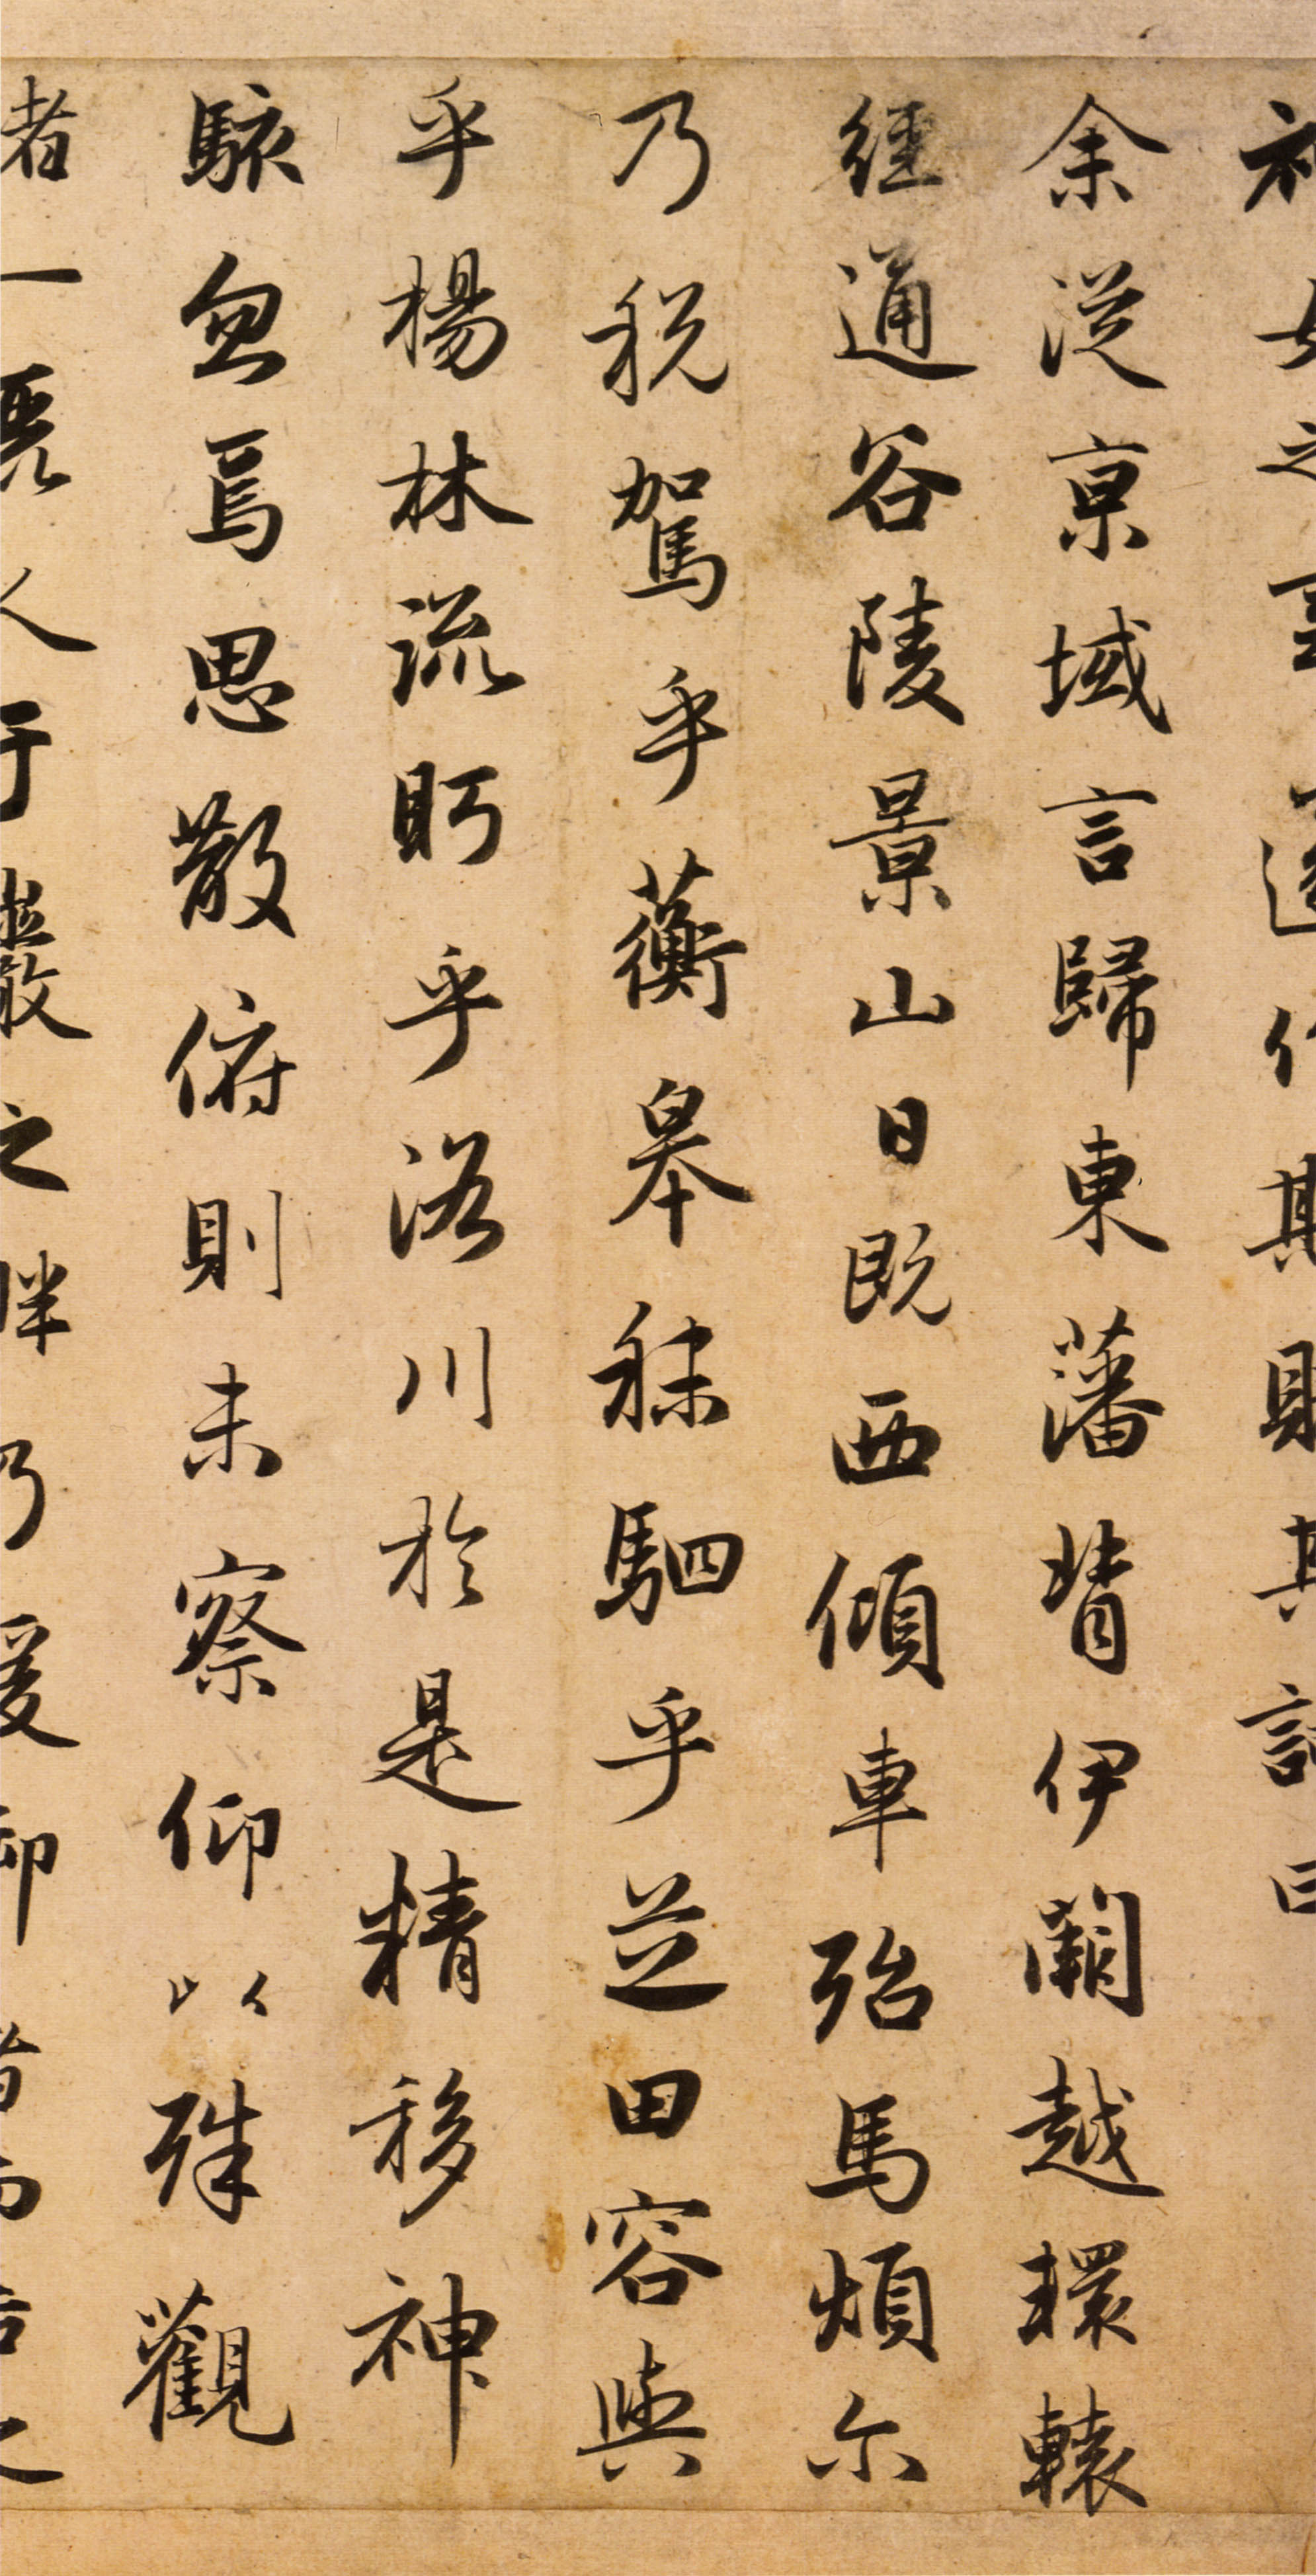 神女之事遂作斯賦其詞曰
余從京域言歸東藩背伊闕越轘轅
經通谷陵景山日既西傾車殆馬煩尓
乃税駕乎蘅皋秣駟乎芝田容與
乎楊林流眄乎洛川於是精移神
駭忽焉思散俯則未察仰以殊觀
睹一麗人于巖之畔乃援御者而告之